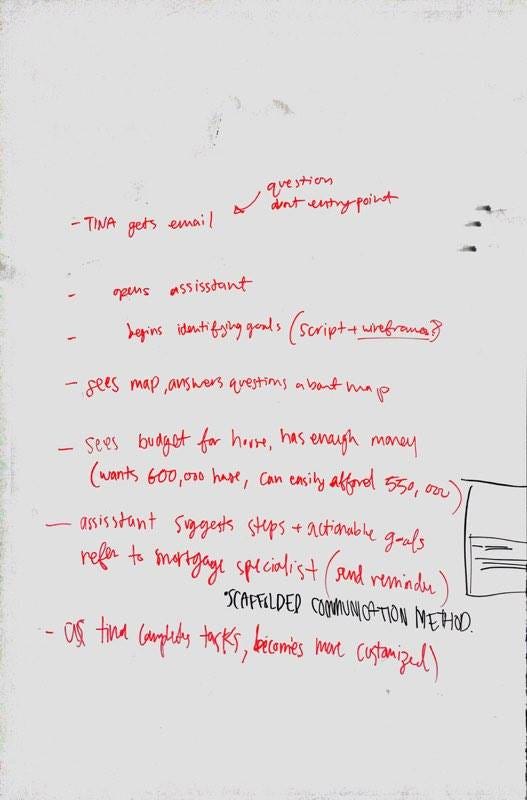 question
about entry point
- TINA gets email
- opens assisstant
- begins identifying goals (script + wireframes?)
- sees map, answers questions about map
- sees budget for house, has enough money
(wants 600,000 house, can easily afford 550,000)
- assistant suggests steps + actionable goals
refer to mortgage specialist (send reminder)
*SCAFFOLDED COMMUNICATION METHOD.
- as tina completes tasks, becomes more customized)